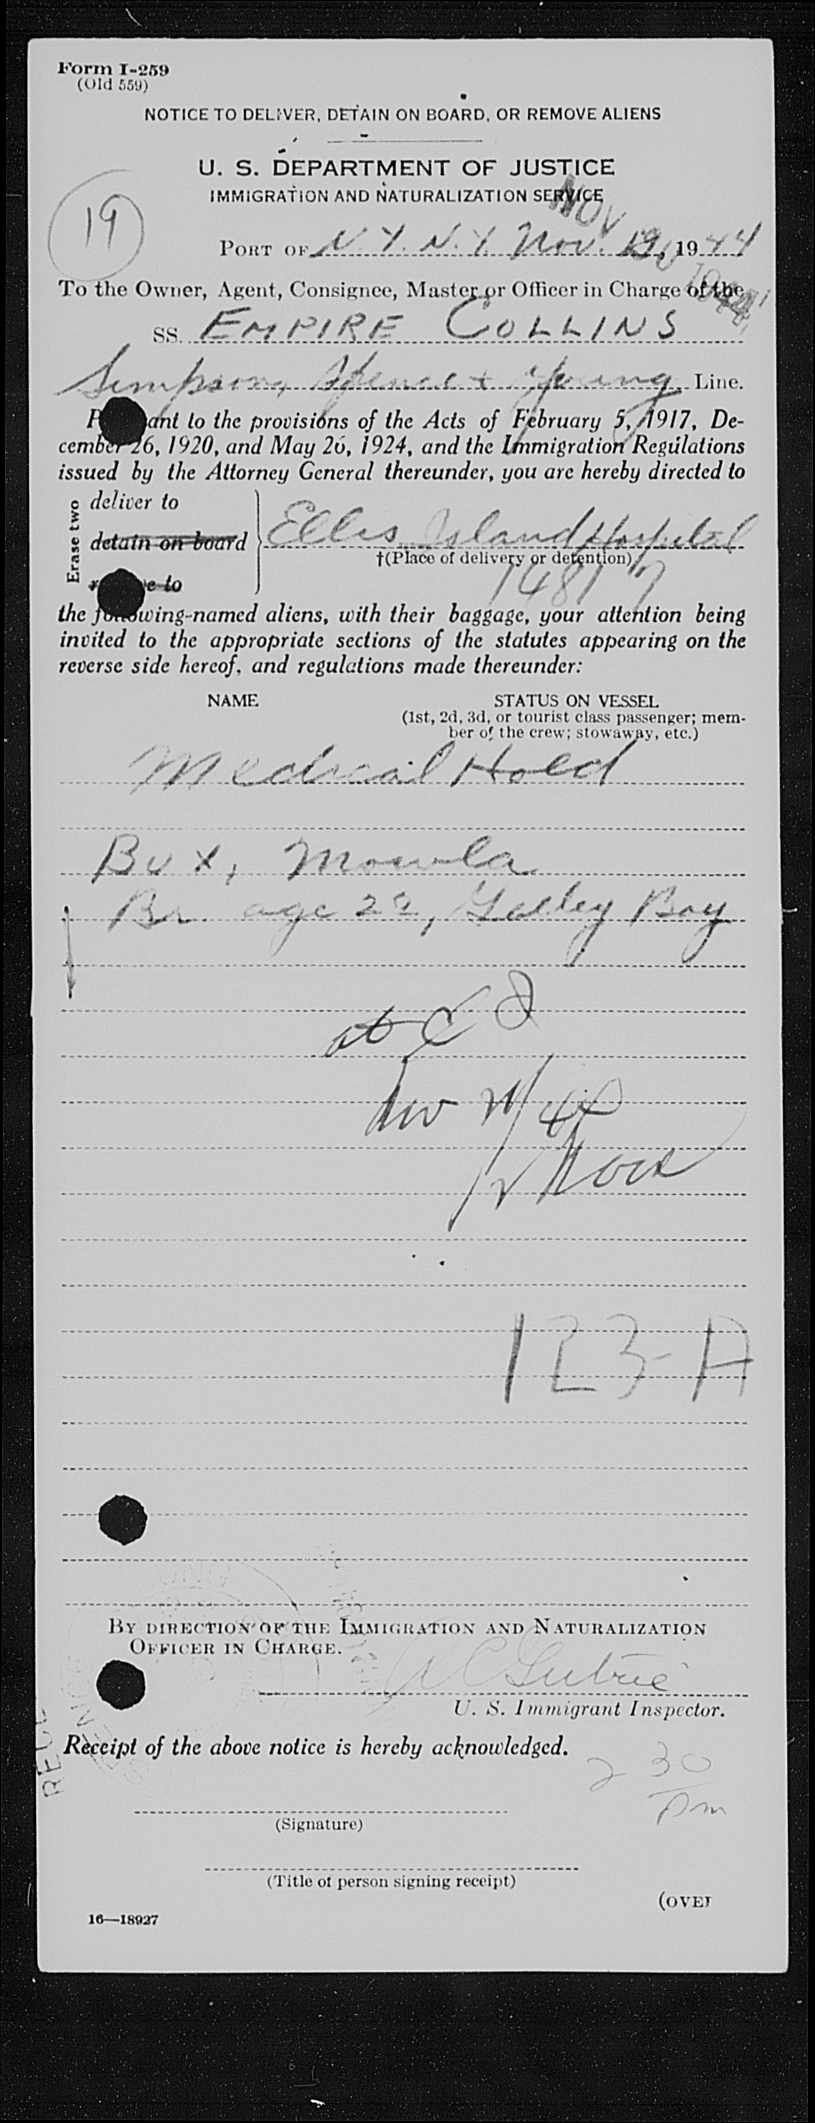 Form I-259
(Old 559)
NOTICE TO DELIVER, DETAIN ON BOARD, OR REMOVE ALIENS
U. S. DEPARTMENT OF JUSTICE
IMMIGRATION AND NATURALIZATION SERVICE
19
NOV
PORT OF N. Y. N. Y. Nov. 19, 1944
To the Owner, Agent, Consignee, Master or Officer in Charge of the
SS. EMPIRE COLLINS
Simpson, Spence & Young Line.
P ant to the provisions of the Acts of February 5, 1917, De-
cember 26, 1920, and May 26, 1924, and the Immigration Regulations
issued by the Attorney General thereunder, you are hereby directed to
Erase two
deliver to
detain on board
e to
Ellis Island Hospital
†(Place of delivery or detention)
the following-named aliens, with their baggage, your attention being
invited to the appropriate sections of the statutes appearing on the
reverse side hereof, and regulations made thereunder:
NAME STATUS ON VESSEL
(1st, 2d, 3d, or tourist class passenger; mem-
ber of the crew; stowaway, etc.)
Medical Hold
Bux, Mowla
Br. age 22, Galley Boy
at E I
123-A
BY DIRECTION OF THE IMMIGRATION AND NATURALIZATION
OFFICER IN CHARGE.
U. S. Immigrant Inspector.
Receipt of the above notice is hereby acknowledged.
2 30
pm
(Signature)
(Title of person signing receipt)
(OVER
16—18927